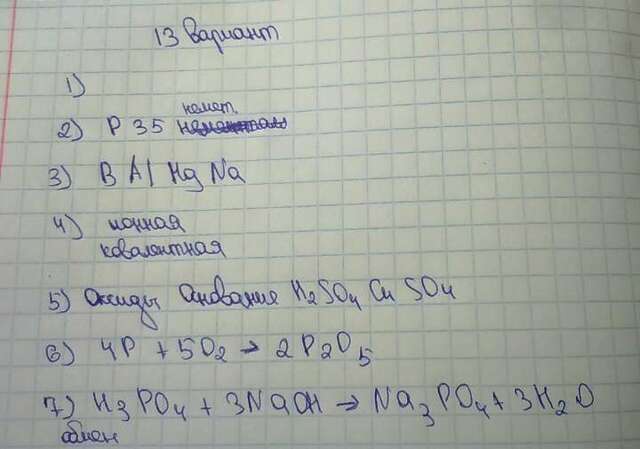 13 Вариант
1)
немет.
2) P 35
3) B Al Hg Na
4) ионная
ковалентная
5) Оксиды Основание H₂SO₄ Cu SO₄
6) 4P + 5O₂ → 2P₂O₅
7) H₃PO₄ + 3NaOH → Na₃PO₄ + 3H₂O
обмен